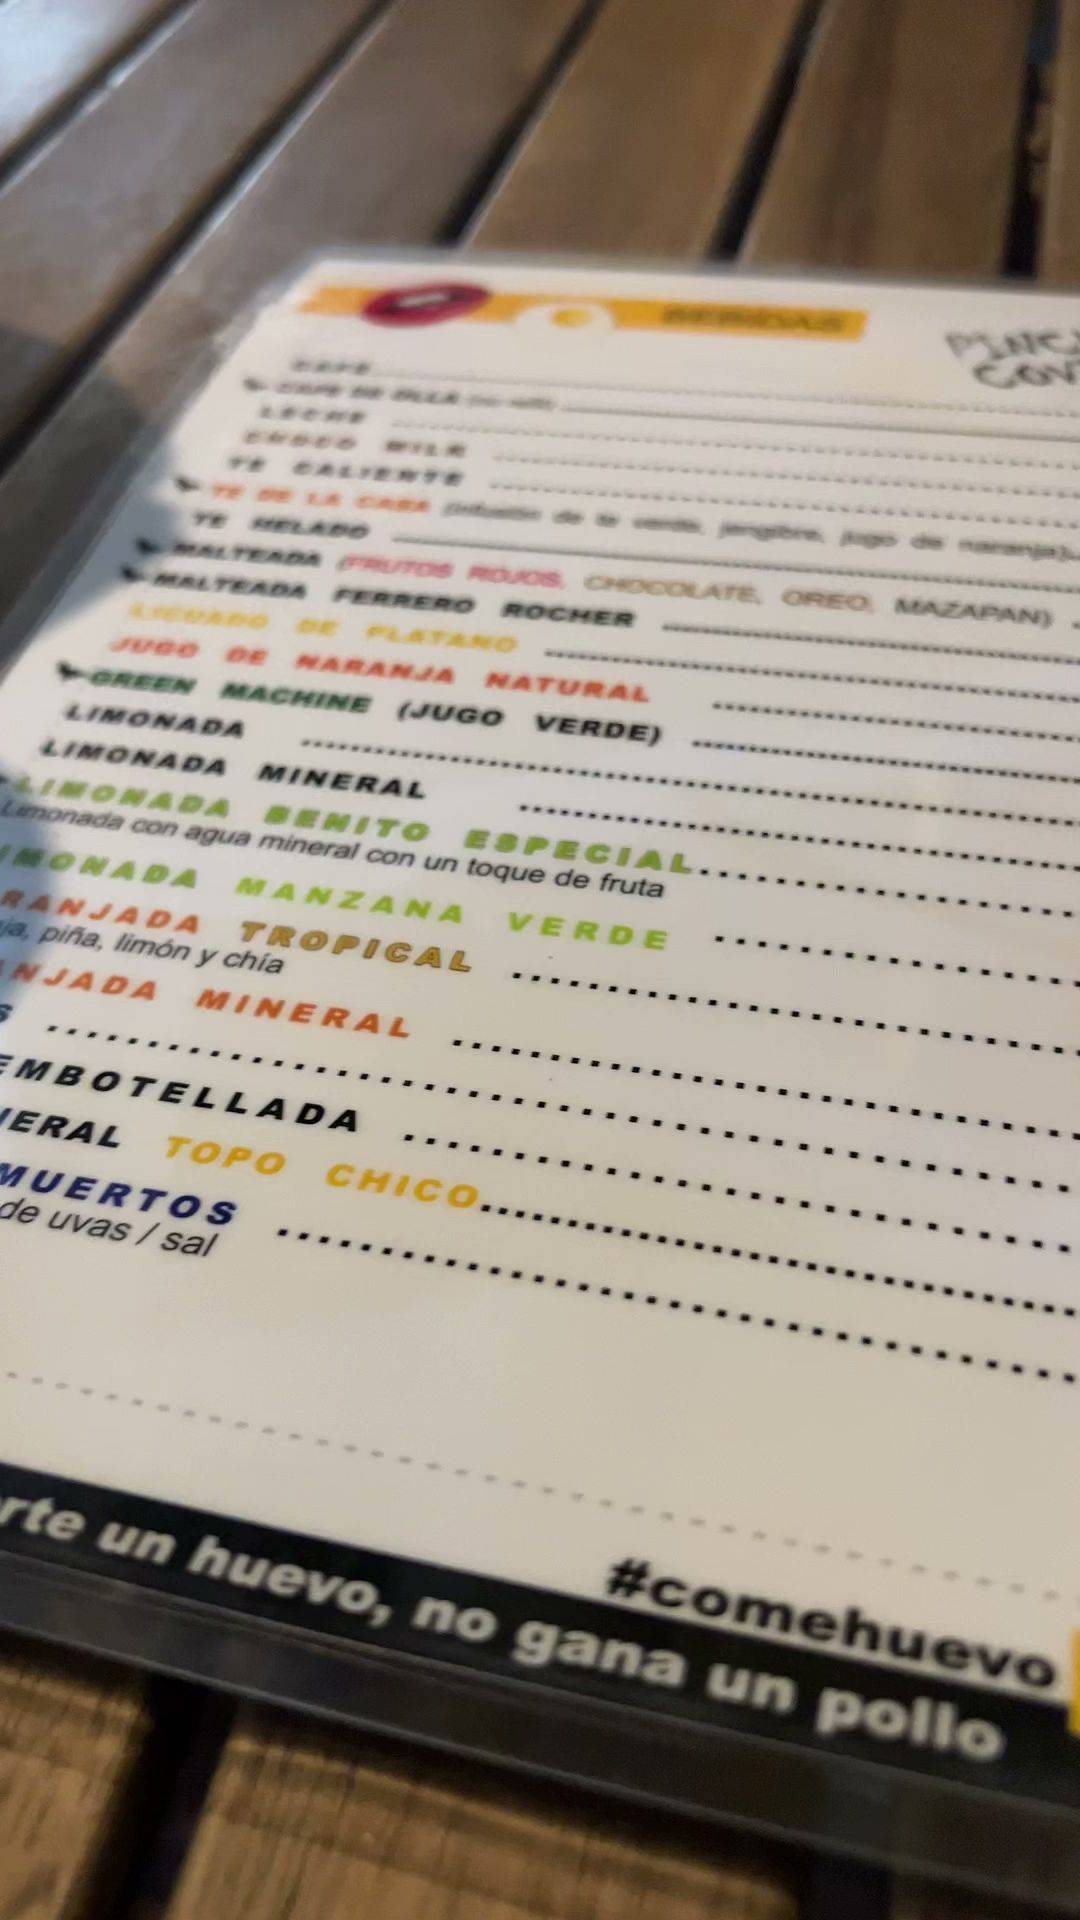 BEBIDAS
CAFE
CAFE DE OLLA
LECHE
CHOCO MILK
TE CALIENTE
TE DE LA CASA (infusión de te verde, jengibre, jugo de naranja)
TE HELADO
MALTEADA (FRUTOS ROJOS, CHOCOLATE, OREO, MAZAPAN)
MALTEADA FERRERO ROCHER
LICUADO DE PLATANO
JUGO DE NARANJA NATURAL
GREEN MACHINE (JUGO VERDE)
LIMONADA
LIMONADA MINERAL
LIMONADA BENITO ESPECIAL
Limonada con agua mineral con un toque de fruta
IMONADA MANZANA VERDE
RANJADA TROPICAL
ja, piña, limón y chía
ANJADA MINERAL
S
EMBOTELLADA
NERAL TOPO CHICO
MUERTOS
de uvas / sal
#comehuevo
rte un huevo, no gana un pollo